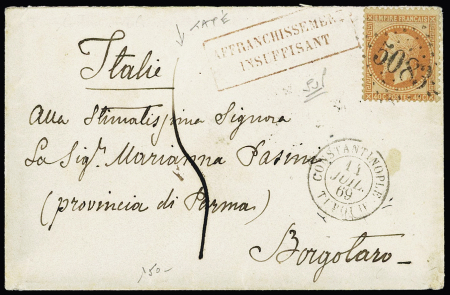 TAXE
AFFRANCHISSEMENT
INSUFFISANT
EMPIRE FRANÇAIS
5083
Italie
Alla Stimatissima Signora
La Sigra Marianna Pasini
(provincia di Parma)
Borgotaro
CONSTANTINOPLE
14
JUIL.
69
TURQUIE
150-